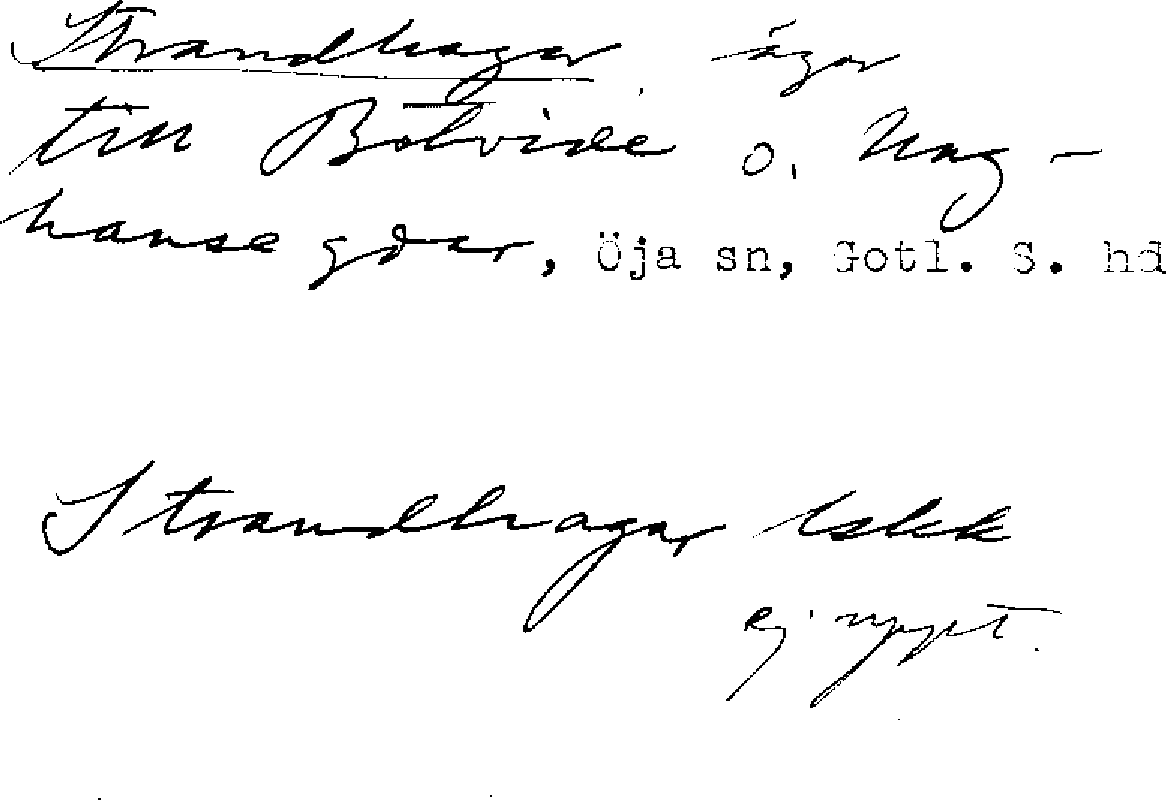 Strandhagar, ägor
till Botvide o. Ung-
hanse gdar, Öja sn, Gotl. S. hd
Strandhagar lskk
ej uppt.